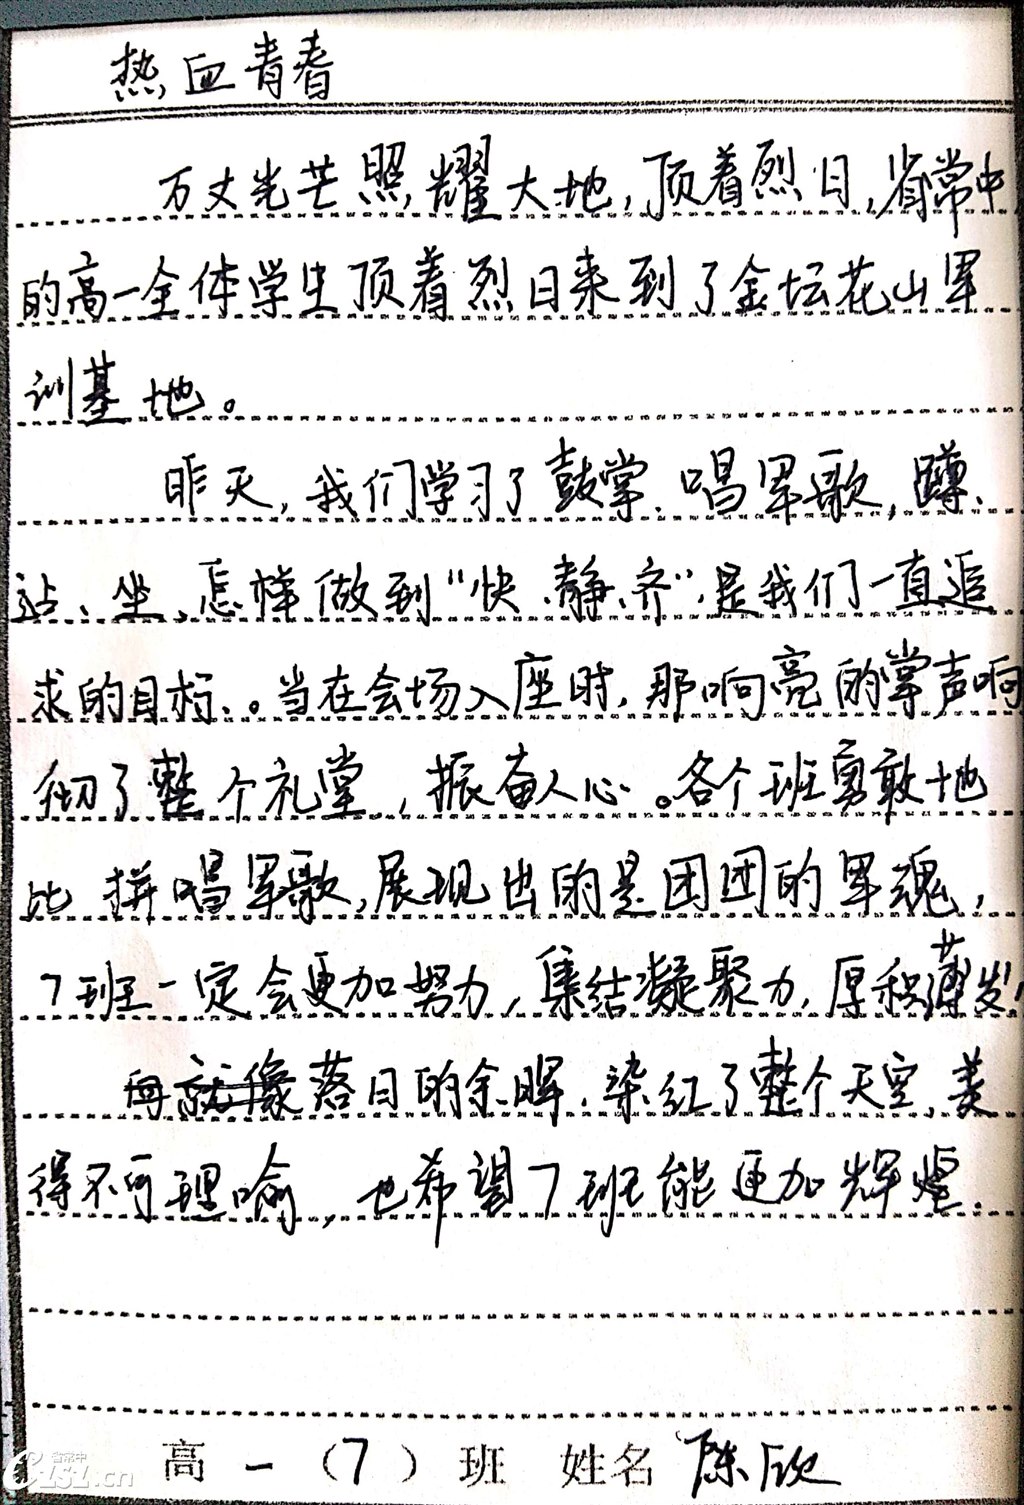 热血青春
万丈光芒照耀大地,顶着烈日,省常中
的高一全体学生顶着烈日来到了金坛花山军
训基地。
昨天,我们学习了鼓掌、唱军歌,蹲、
站、坐、怎样做到“快、静、齐”,是我们一直追
求的目标、。当在会场入座时,那响亮的掌声响
彻了整个礼堂,振奋人心。各个班勇敢地
比拼唱军歌,展现出的是团团的军魂,
7班一定会更加努力,集结凝聚力,厚积薄发!
落日的余晖、染红了整个天空,美
得不可理喻,也希望7班能更加辉煌.
高一(7)班 姓名 陈欣
省常中
CZSZ.cn